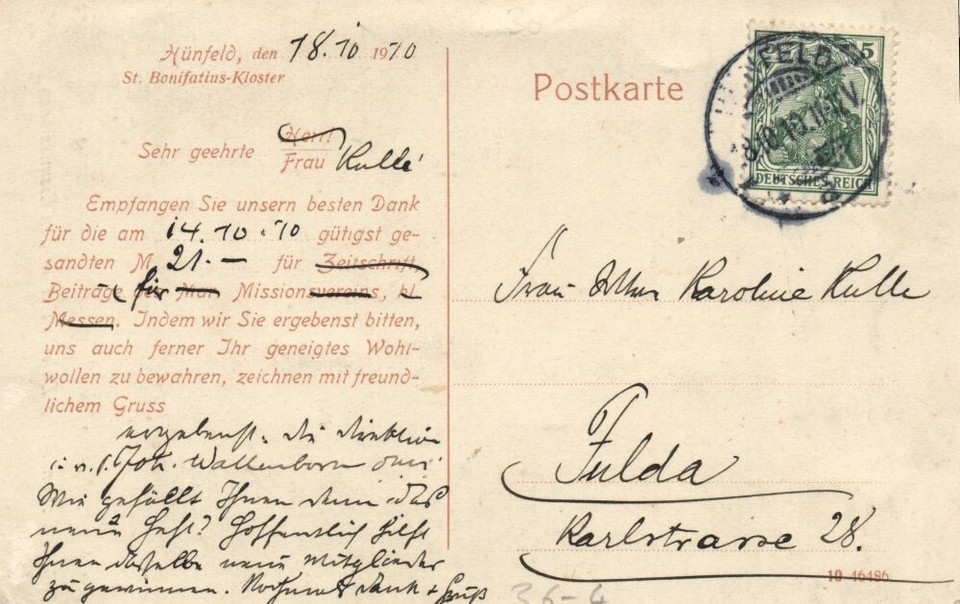 Hünfeld, den 18.10 1910
St. Bonifatius-Kloster
Sehr geehrte Herrn
Frau Kulle
Empfangen Sie unsern besten Dank
für die am 14.10.10 gütigst ge-
sandten M. 21.— für Zeitschrift,
Beiträge für Mar. Missionsvereins, hl.
Messen. Indem wir Sie ergebenst bitten,
uns auch ferner Ihr geneigtes Wohl-
wollen zu bewahren, zeichnen mit freund-
lichem Gruss
ergebenst. die Direktion
i. V. P. Joh. Wallenborn omi
Wie gefällt Ihnen denn das
neue Heft? Hoffentlich hilft
Ihnen dasselbe neue Mitglieder
zu gewinnen. Dank + Gruß
Postkarte
5
HÜNFELD
8.10.10.11-12V.
DEUTSCHES REICH
Frau Karoline Kulle
Fulda
Karlstrasse 28.
10 46486
36-4